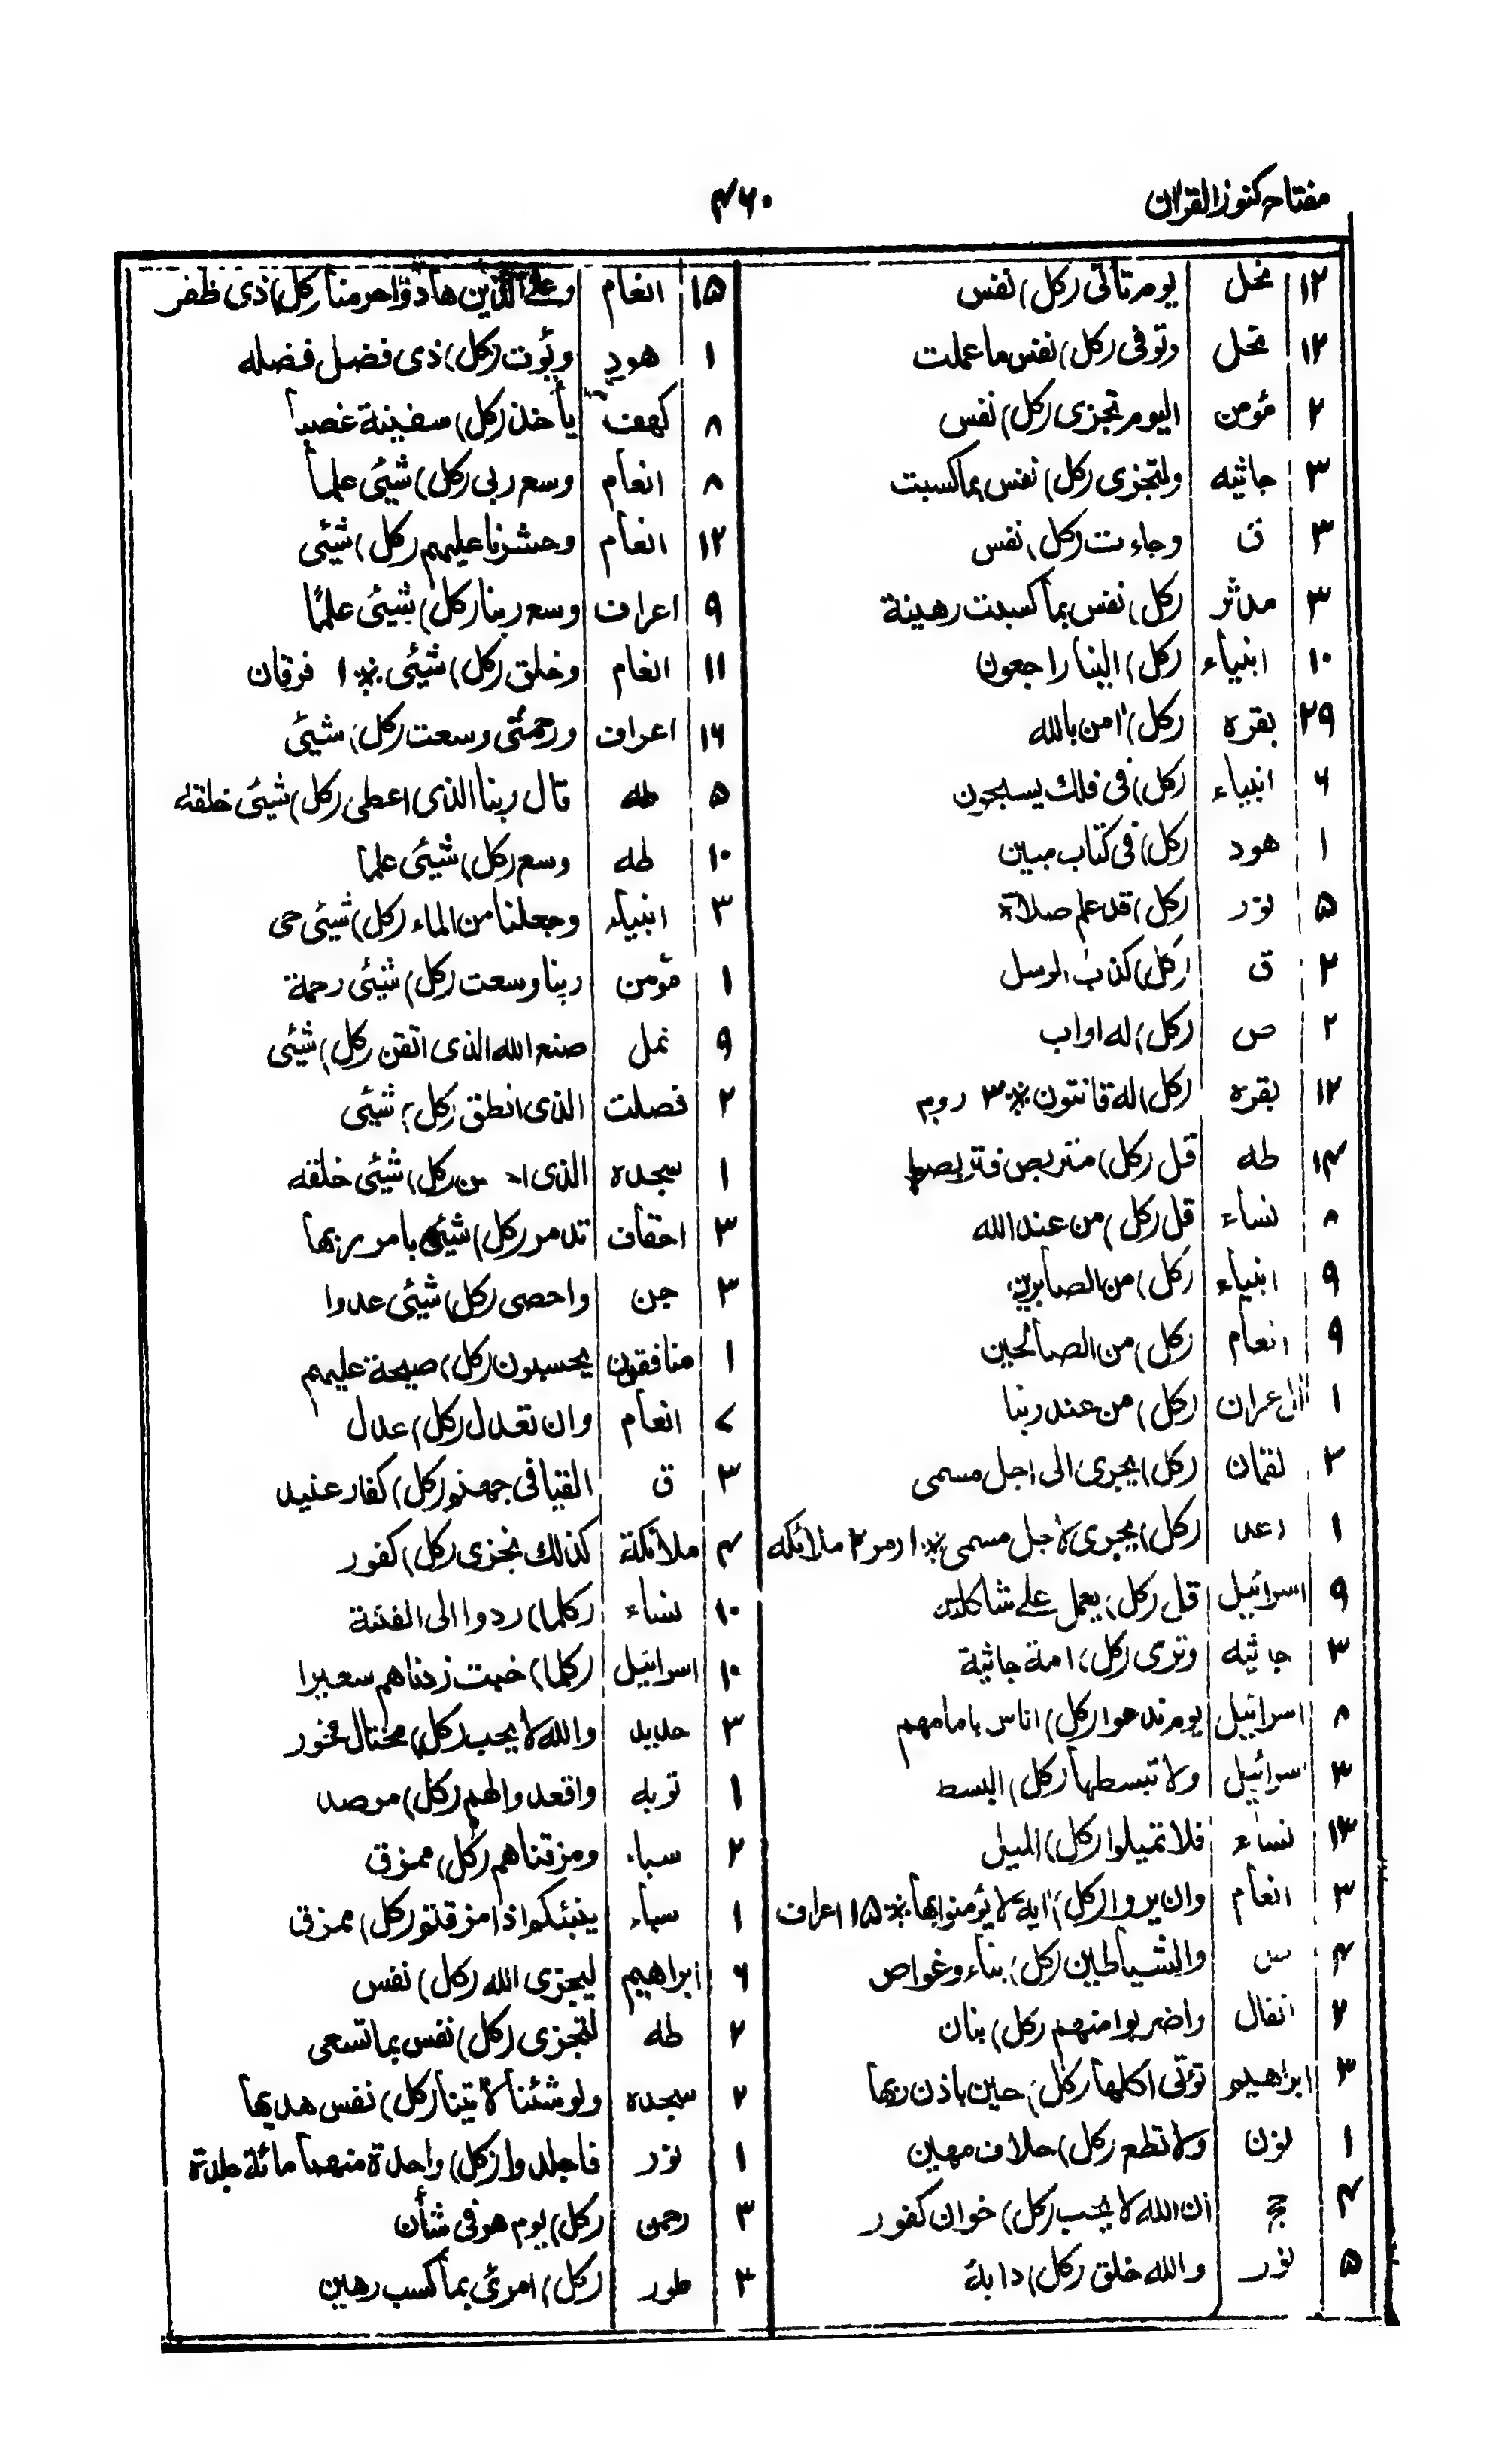 مفتاح كنوز القران
۴۶۰
۱۲ نحل يوم تأتى (كل) نفس
۱۲ نحل وتوفى (كل) نفس ما عملت
۲ مؤمن اليوم تجزى (كل) نفس
۳ جاثيه ولتجزى (كل) نفس بما كسبت
۳ ق وجاءت (كل) نفس
۳ مدثر (كل) نفس بما كسبت رهينة
۱۰ انبياء (كل) الينا راجعون
۲۹ بقره (كل) امن بالله
۶ انبياء (كل) فى فلك يسبحون
۱ هود (كل) فى كتاب مبين
۵ نور (كل) قد علم صلاة
۲ ق (كل) كذب الرسل
۲ ص (كل) له اواب
۱۲ بقره (كل) له قانتون * ۳ روم
۱۴ طه قل (كل) متربص فتربصوا
۸ نساء قل (كل) من عند الله
۹ انبياء (كل) من الصابرين
۹ انعام (كل) من الصالحين
۱ ال عران (كل) من عند ربنا
۳ لقمان (كل) يجرى الى اجل مسمى
۱ رعد (كل) يجرى لاجل مسمى * ۱ زمر ۲ ملائكه
۹ اسرائيل قل (كل) يعمل على شاكلته
۳ جاثيه وترى (كل) امة جاثية
۸ اسرائيل يوم ندعوا (كل) اناس بامامهم
۳ اسرائيل ولا تبسطها (كل) البسط
۱۳ نساء فلا تميلوا (كل) الميل
۳ انعام وان يروا (كل) اية لا يؤمنوا بها * ۱۵ اعراف
۴ ص والشياطين (كل) بناء وغواص
۲ انفال واضربوا منهم (كل) بنان
۳ ابراهيم تؤتى اكلها (كل) حين باذن ربها
۱ نون ولا تطع (كل) حلاف مهين
۴ حج ان الله لا يحب (كل) خوان كفور
۵ نور والله خلق (كل) دابة
۱۵ انعام وعلى الذين هادوا حرمنا (كل) ذى ظفر
۱ هود ويؤت (كل) ذى فضل فضله
۸ كهف يأخذ (كل) سفينة غصبا
۸ انعام وسع ربى (كل) شيئى علما
۱۲ انعام وحشرنا عليهم (كل) شيئى
۹ اعراف وسع ربنا (كل) شيئى علمًا
۱۱ انعام وخلق (كل) شيئى * ۱ فرقان
۱۶ اعراف ورحمتى وسعت (كل) شيئى
۵ طه قال ربنا الذى اعطى (كل) شيئى خلقه
۱۰ طه وسع (كل) شيئى علما
۳ انبياء وجعلنا من الماء (كل) شيئى حى
۱ مؤمن ربنا وسعت (كل) شيئى رحمة
۹ نمل صنع الله الذى اتقن (كل) شيئى
۲ فصلت الذى انطق (كل) شيئى
۱ سجده الذى احسن (كل) شيئى خلقه
۳ احقاف تدمر (كل) شيئى بامر ربها
۳ جن واحصى (كل) شيئى عددا
۱ منافقون يحسبون (كل) صيحة عليهم
۷ انعام وان تعدل (كل) عدل
۳ ق القيا فى جهنم (كل) كفار عنيد
۴ ملائكة كذلك نجزى (كل) كفور
۱۰ نساء (كلما) ردوا الى الفتنة
۱۰ اسرائيل (كلما) خبت زدناهم سعيرا
۳ حديد والله لا يحب (كل) مختال فخور
۱ توبه واقعدوا لهم (كل) مرصد
۲ سباء ومزقناهم (كل) ممزق
۱ سباء ينبئكم اذا مزقتم (كل) ممزق
۶ ابراهيم ليجزى الله (كل) نفس
۲ طه لتجزى (كل) نفس بما تسعى
۲ سجده ولو شئنا لاتينا (كل) نفس هديها
۱ نور فاجلدوا (كل) واحدة منهما مائة جلدة
۳ رحمن (كل) يوم هو فى شأن
۲ طور (كل) امرئى بما كسب رهين